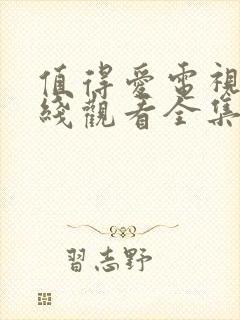 值得愛電視
綫觀看全集
習志野